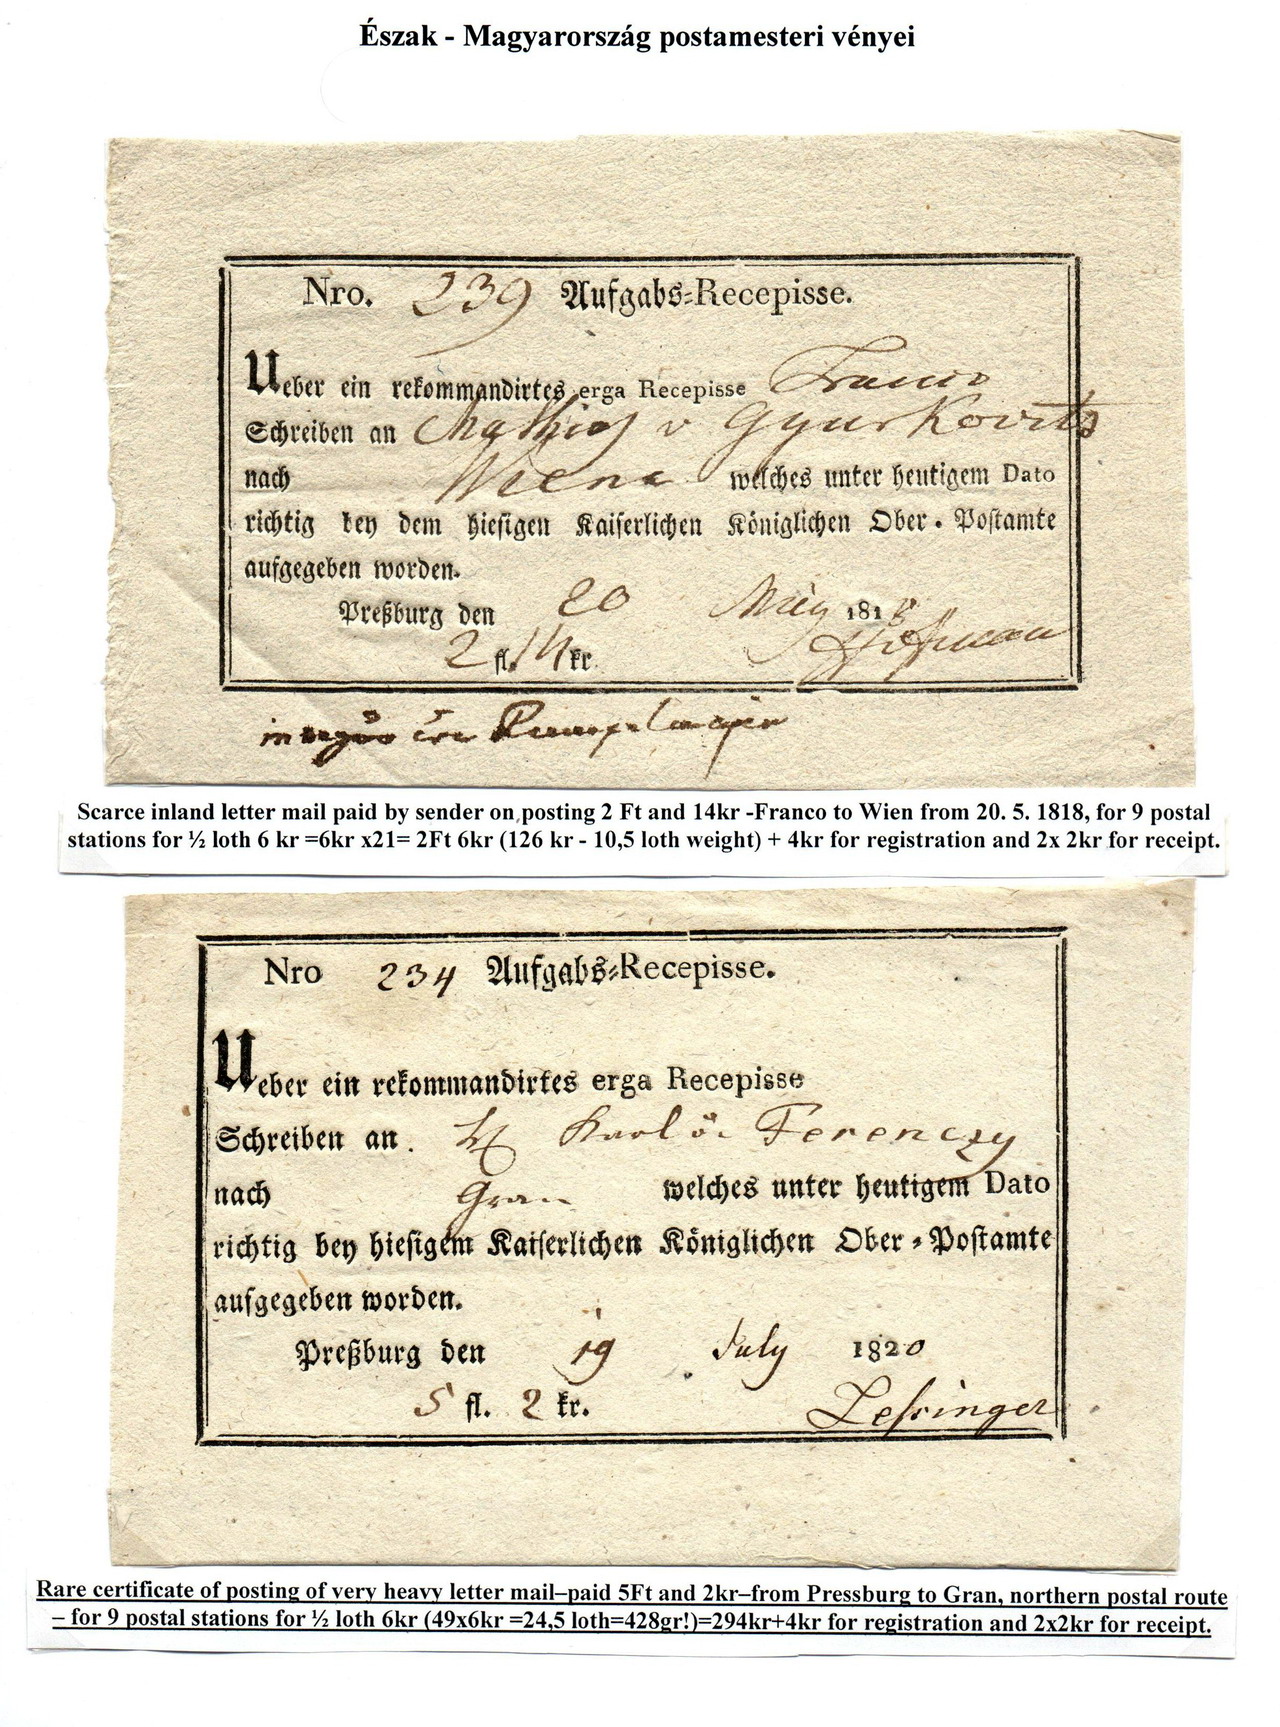 Észak - Magyarország postamesteri vényei
Nro. 239 Aufgabs-Recepisse.
Ueber ein rekommandirtes erga Recepisse Franco
Schreiben an Mathias v Gyurkovits
nach Wienn welches unter heutigem Dato
richtig bey dem hiesigen Kaiserlichen Königlichen Ober-Postamte
aufgegeben worden.
Preßburg den 20 May 1818
2 fl. 14 kr
Scarce inland letter mail paid by sender on posting 2 Ft and 14kr -Franco to Wien from 20. 5. 1818, for 9 postal
stations for ½ loth 6 kr =6kr x21= 2Ft 6kr (126 kr - 10,5 loth weight) + 4kr for registration and 2x 2kr for receipt.
Nro 234 Aufgabs-Recepisse.
Ueber ein rekommandirtes erga Recepisse
Schreiben an. Karl Ferenczy
nach Gran welches unter heutigem Dato
richtig bey hiesigem Kaiserlichen Königlichen Ober-Postamte
aufgegeben worden.
Preßburg den 19 July 1820
5 fl. 2 kr. Lessinger
Rare certificate of posting of very heavy letter mail–paid 5Ft and 2kr–from Pressburg to Gran, northern postal route
– for 9 postal stations for ½ loth 6kr (49x6kr =24,5 loth=428gr!)=294kr+4kr for registration and 2x2kr for receipt.